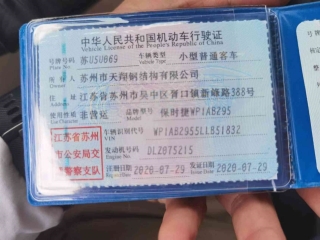 中华人民共和国机动车行驶证
Vehicle License of the People's Republic of China
号牌号码 苏U5U069 车辆类型 小型普通客车
Plate No. Vehicle Type
所有人 苏州市天翔钢结构有限公司
Owner
住址 江苏省苏州市吴中区胥口镇新峰路388号
Address
使用性质 非营运 品牌型号 保时捷WP1AB295
Use Character Model
江苏省苏州市公安局交警察支队
车辆识别代号 WP1AB2955LLB51832
VIN
发动机号码 DLZ075215
Engine No.
注册日期 2020-07-29 发证日期 2020-07-29
Register Date Issue Date